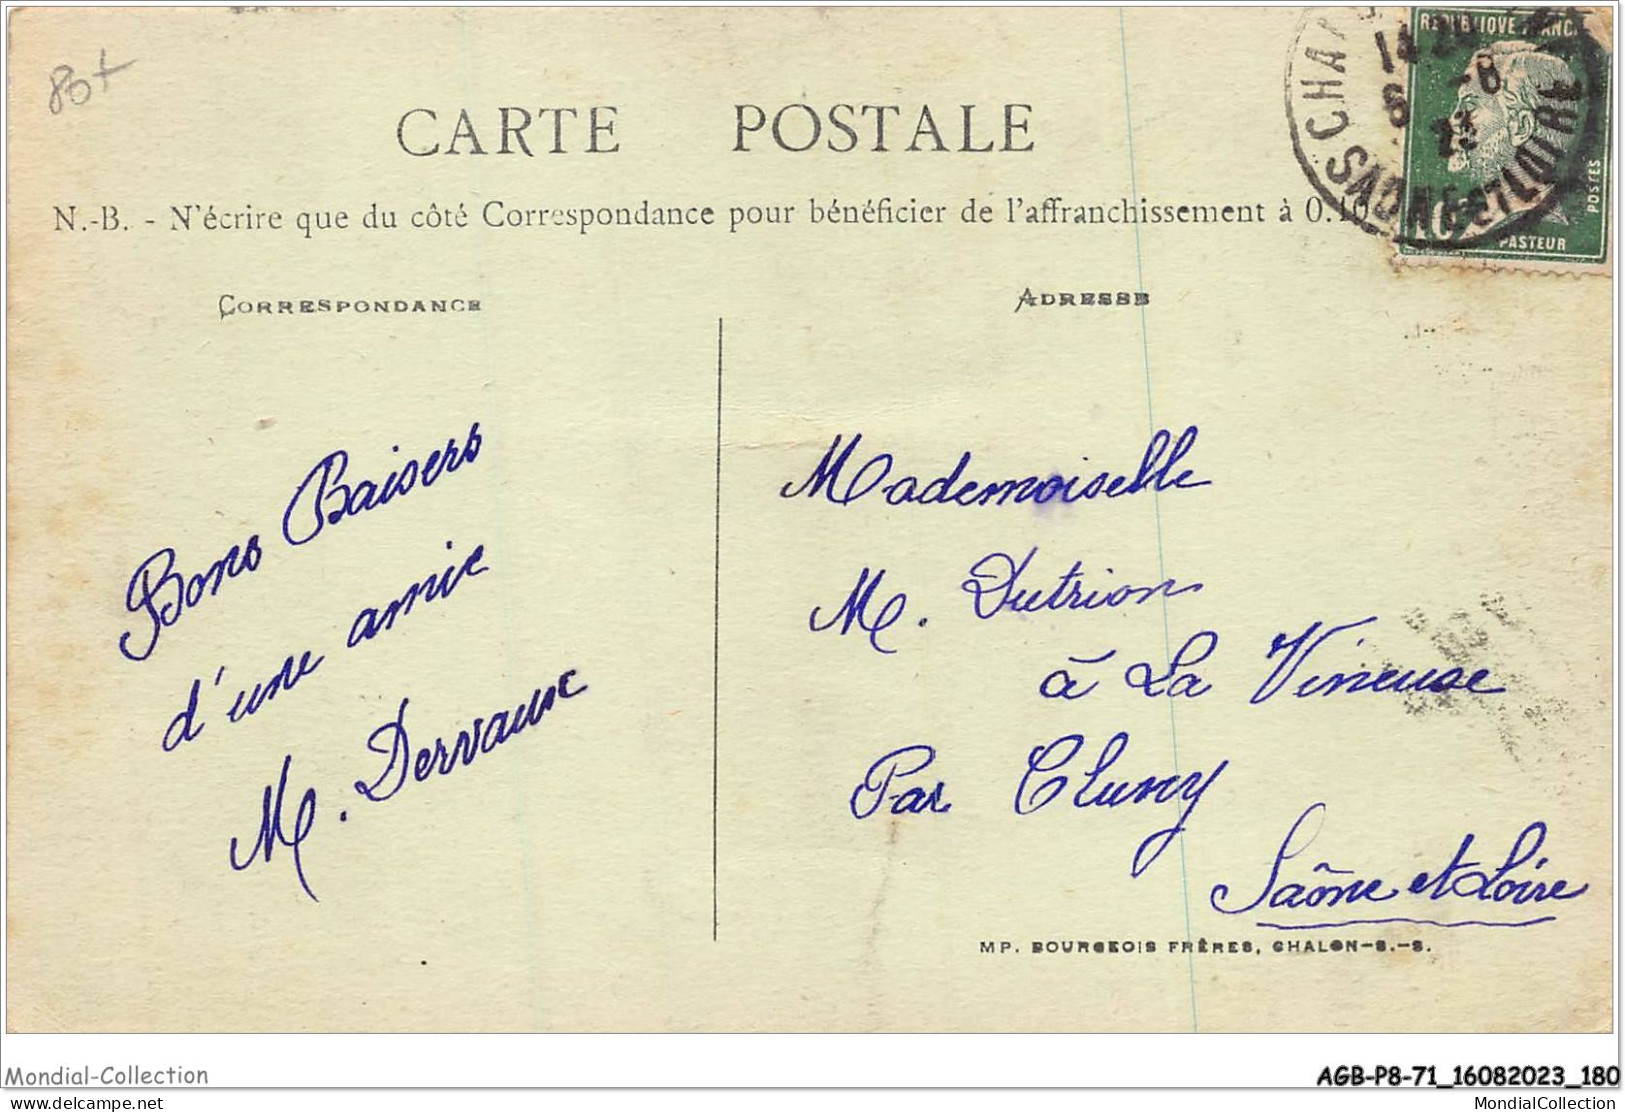 80+
CARTE POSTALE
N.-B. - N'écrire que du côté Correspondance pour bénéficier de l'affranchissement à 0.10
CORRESPONDANCE
ADRESSE
REPUBLIQUE FRANC
POSTES
10
PASTEUR
14
6 -8
23
SAONE ET LOIRE
Bons Baisers
d'une amie
M. Dervaux
Mademoiselle
M. Dutrion
à La Vineuse
Par Cluny
Saône et Loire
MP. BOURGEOIS FRÈRES, CHALON-S.-S.
Mondial-Collection
AGB-P8-71_16082023_180
www.delcampe.net
MondialCollection